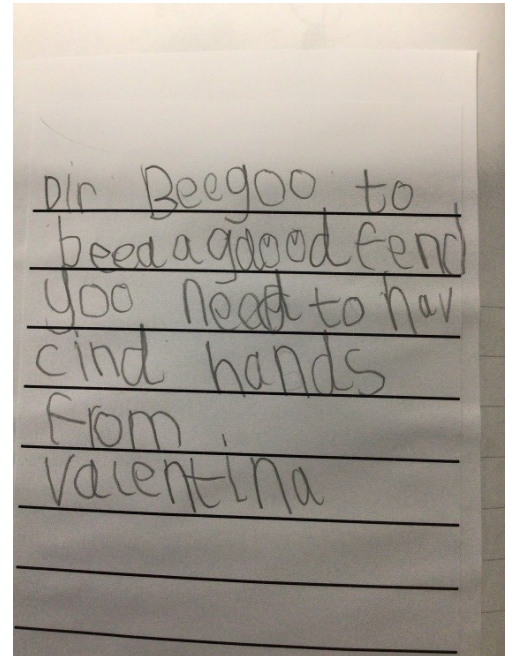 Dir Beegoo to
beed a gdood fend
yoo need to hav
cind hands
from
Valentina